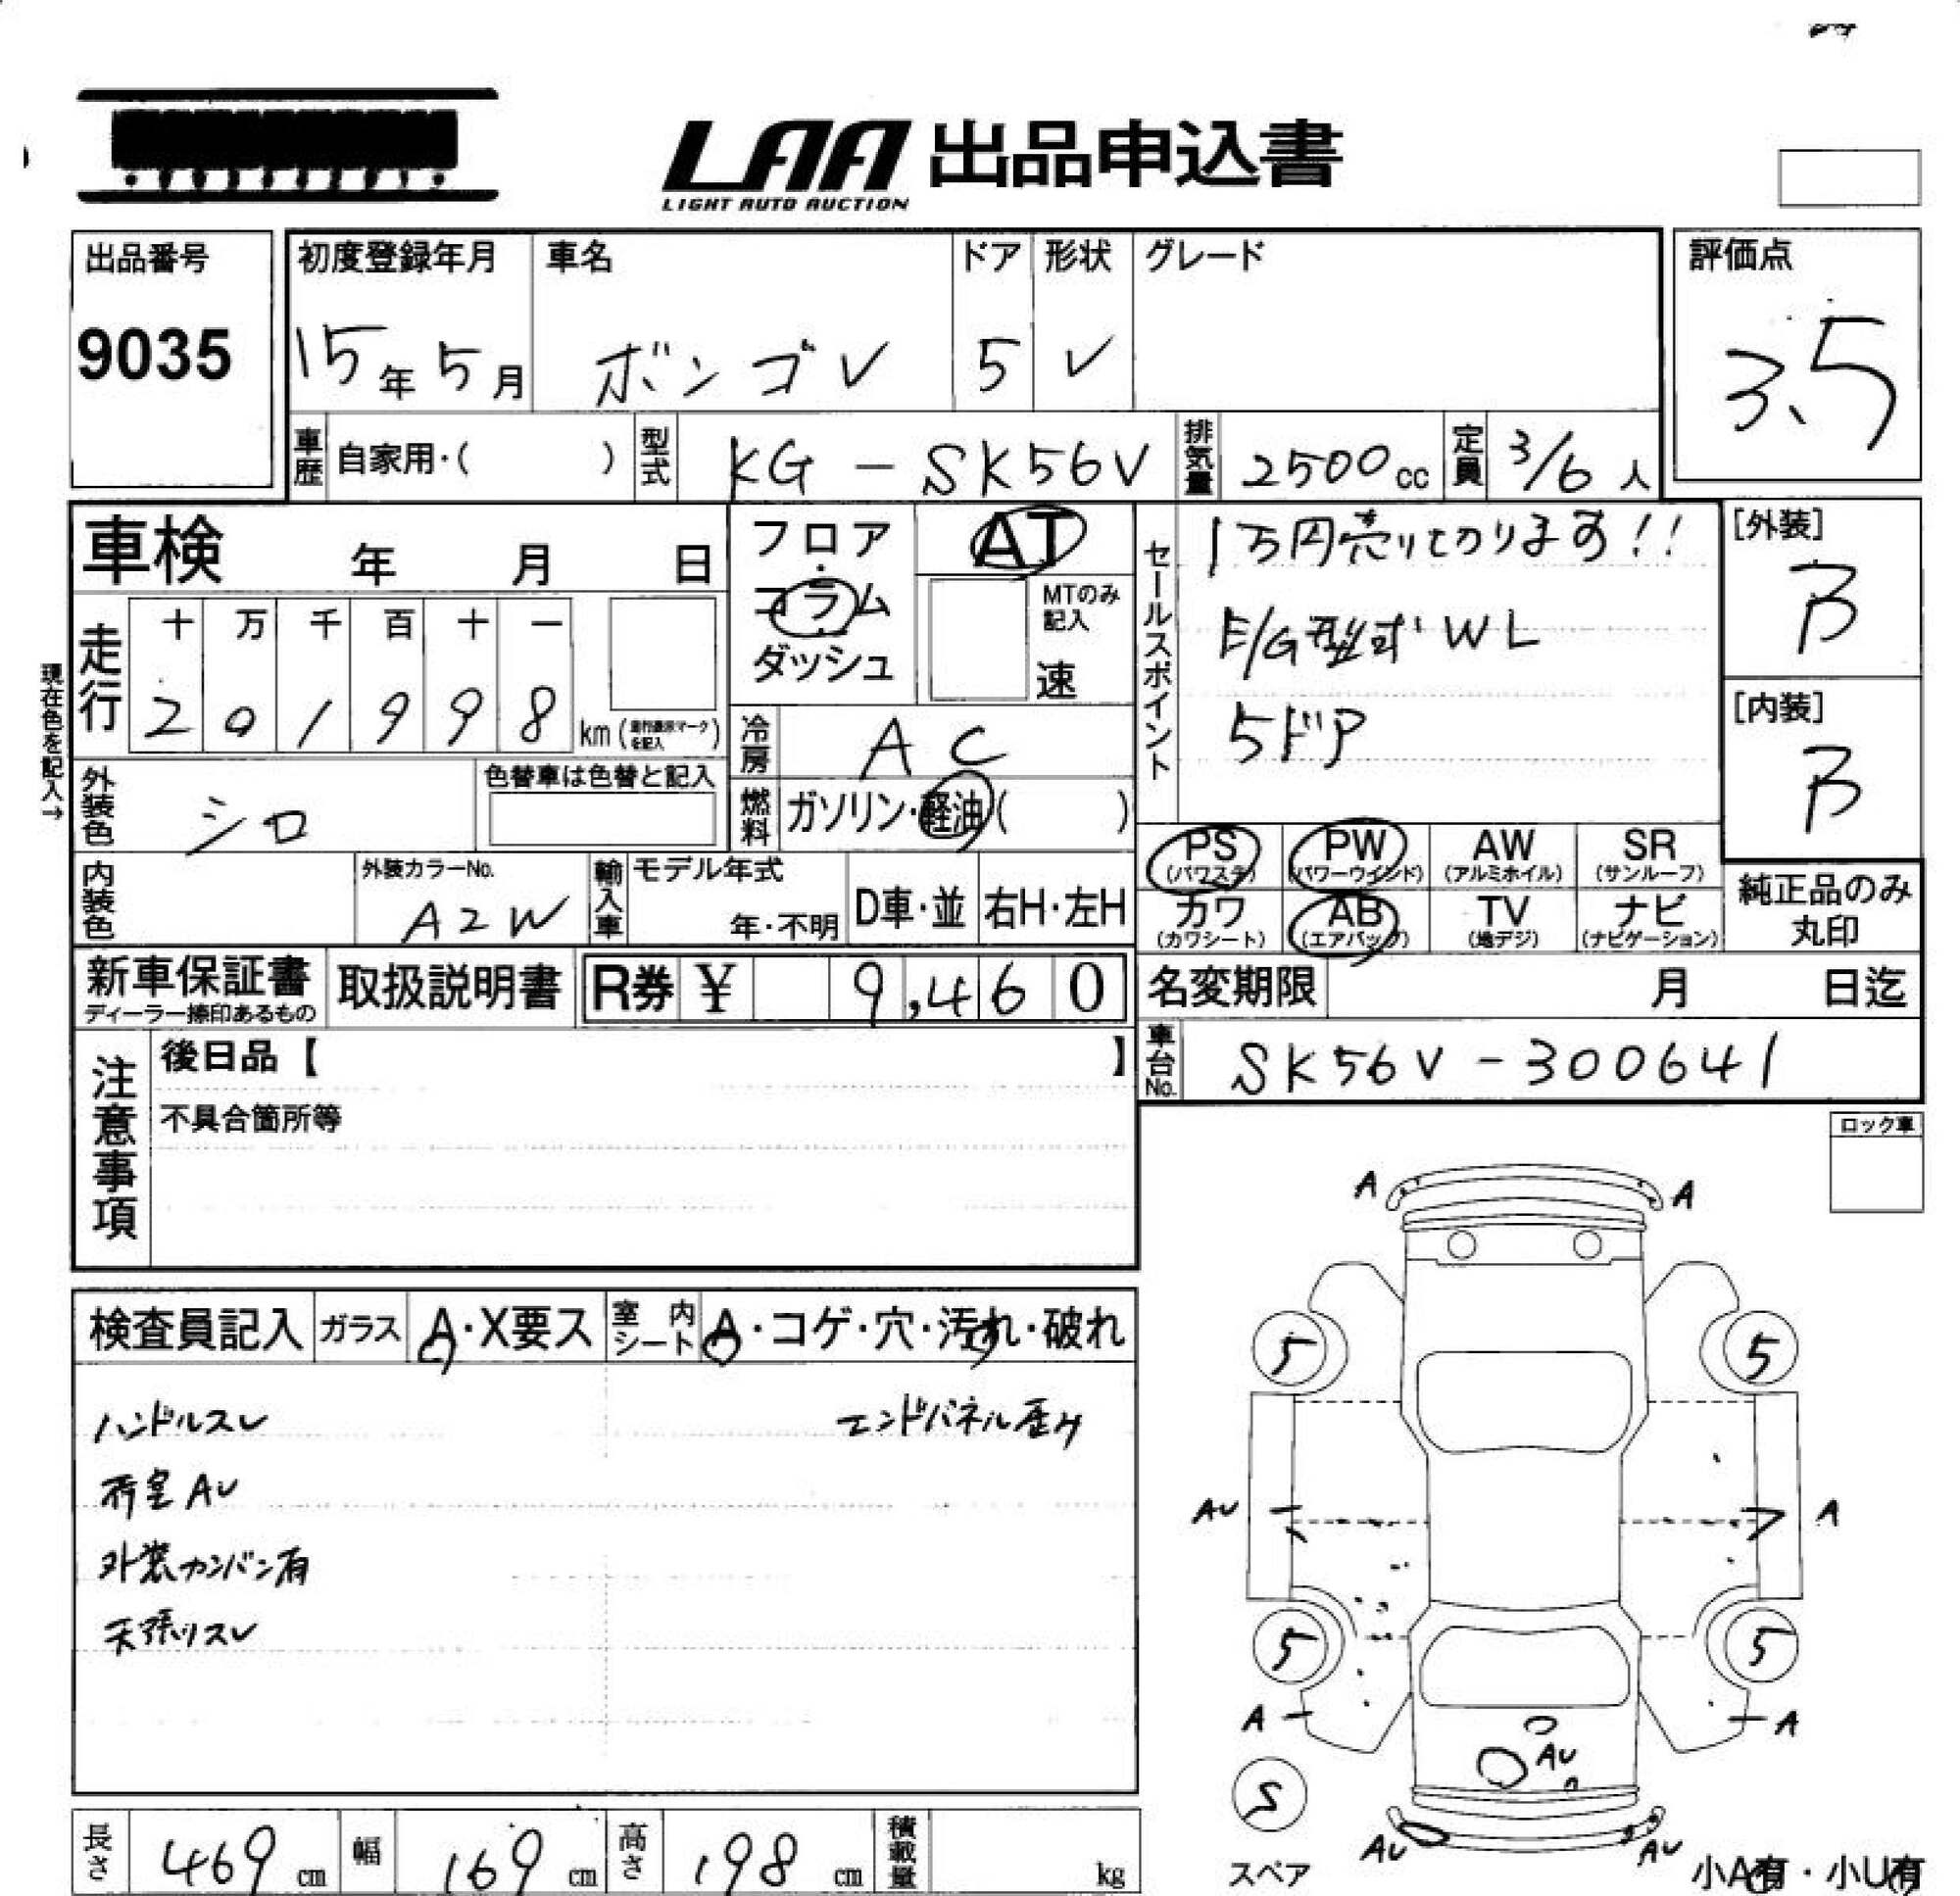 LAA 出品申込書
LIGHT AUTO AUCTION
出品番号
9035
初度登録年月
15年 5月
車名
ボンゴV
ドア
5
形状
V
グレード
評価点
3.5
車歴 自家用・( )
型式 KG-SK56V
排気量 2500cc
定員 3/6人
車検 年 月 日
フロア・コラム・ダッシュ
AT
MTのみ記入
速
セールスポイント
1万円売りきります!!
E/G型式 WL
5ドア
[外装]
B
[内装]
B
現在色を記入→
走行
十 万 千 百 十 一
2 0 1 9 9 8 km (走行表示マークを記入)
冷房 AC
燃料 ガソリン・軽油( )
外装色 シロ
色替車は色替と記入
内装色
外装カラーNo.
A2W
輸入車
モデル年式
年・不明
D車・並
右H・左H
PS (パワステ)
PW (パワーウインド)
AW (アルミホイル)
SR (サンルーフ)
カワ (カワシート)
AB (エアバッグ)
TV (地デジ)
ナビ (ナビゲーション)
純正品のみ丸印
新車保証書
ディーラー捺印あるもの
取扱説明書
R券 ¥ 9,460
名変期限 月 日迄
車台No. SK56V-300641
注意事項
後日品【 】
不具合箇所等
ロック車
検査員記入
ガラス A・X要ス
室内シート A・コゲ・穴・汚れ・破れ
ハンドルスレ
エンドパネル歪み
荷室AU
外装カンバン有
天張リスレ
A A
5 5
AU A
5 5
A A
AU
S
スペア
AU AU
小A有・小U有
長さ 469cm
幅 169cm
高さ 198cm
積載量 kg